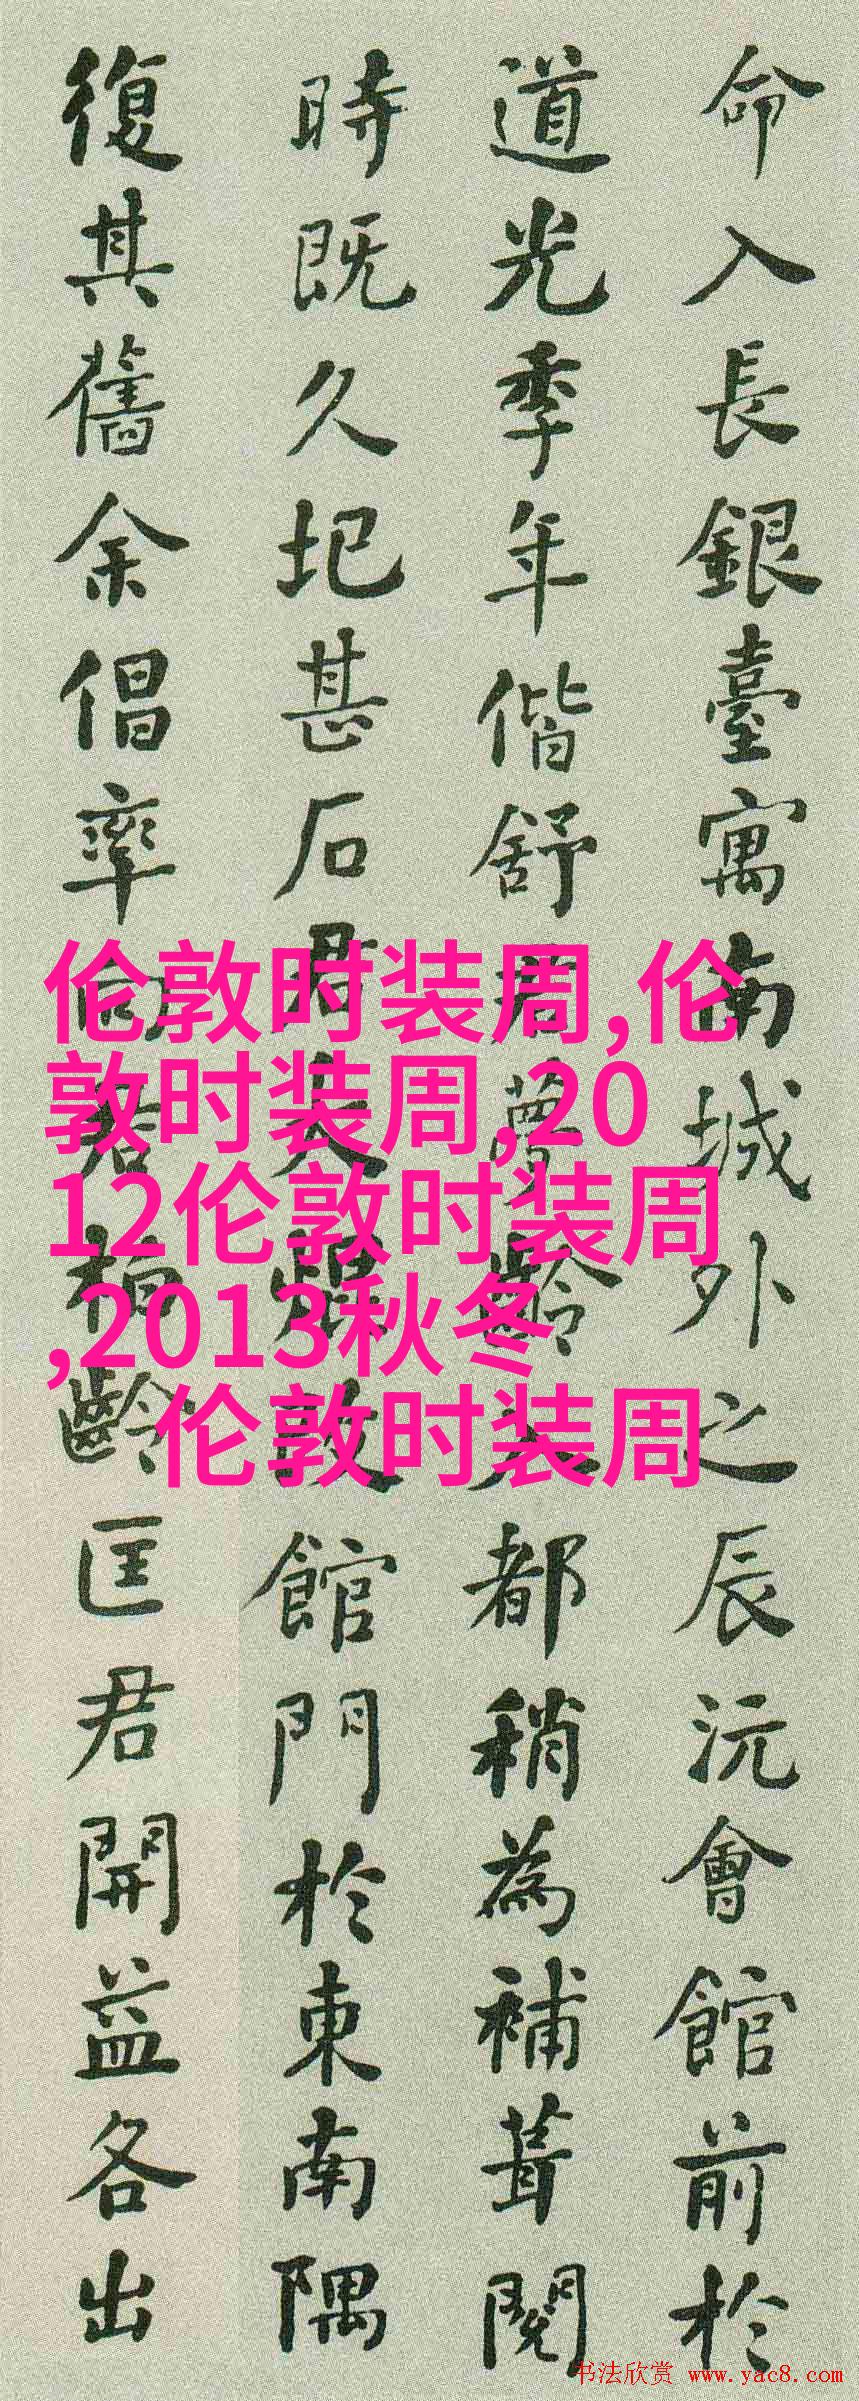 命入長銀臺寓南城外之辰沅會館前於
道光季年偕舒君夢齡入都稍為補葺閱
時既久圮甚石君大焜改館門於東南隅
復其舊余倡率向君柏齡匡君開益各出
伦敦时装周,伦
敦时装周,20
12伦敦时装周
,2013秋冬
伦敦时装周
书法欣赏 www.yac8.com